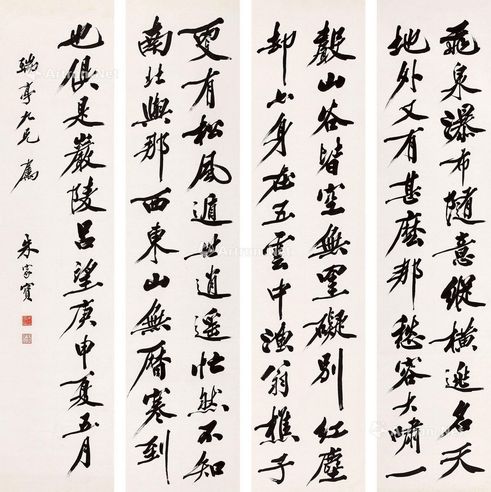 飛泉瀑布隨意縱橫逃名天
地外又有甚麼那愁容大肅一
聲山谷皆空無罣礙別紅塵
却七身在五雲中漁翁樵子
更有松風遁世逍遥忙然不知
南北與那西東山無曆寒到
也俱是巖陵呂望庚申夏五月
亭九兄屬
朱家寶